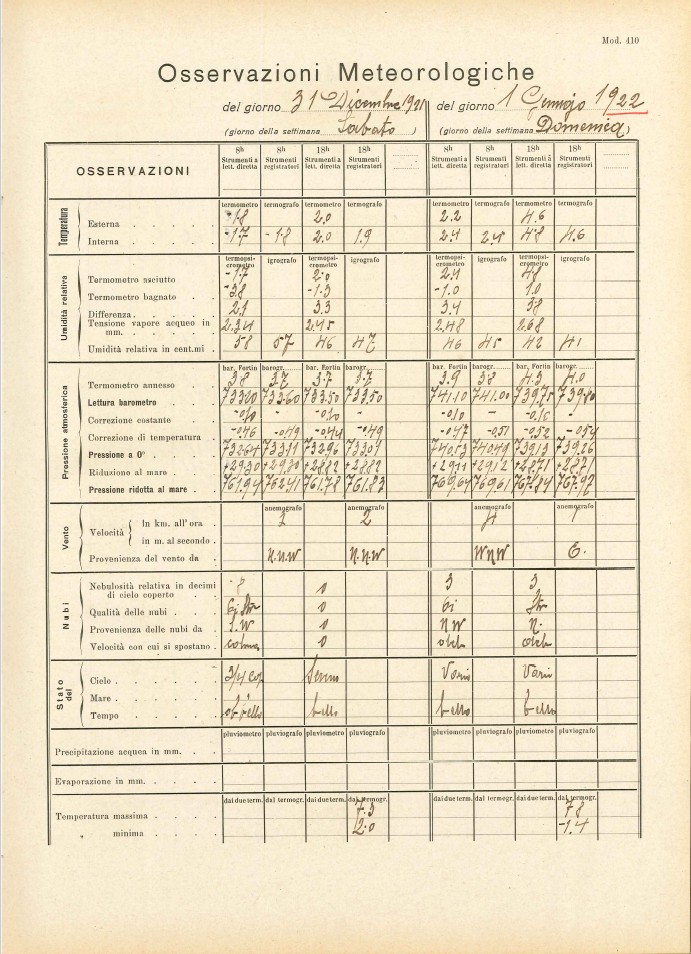 Mod. 410
Osservazioni Meteorologiche
del giorno 31 Dicembre 1921 del giorno 1 Gennajo 1922
(giorno della settimana Sabato) (giorno della settimana Domenica)
OSSERVAZIONI 8h Strumenti a lett. diretta 8h Strumenti registratori 18h Strumenti a lett. diretta 18h Strumenti registratori 8h Strumenti a lett. diretta 8h Strumenti registratori 18h Strumenti a lett. diretta 18h Strumenti registratori
Temperatura
termometro termografo termometro termografo termometro termografo termometro termografo
Esterna -1.8 2.0 2.2 4.6
Interna -1.7 -1.8 2.0 1.9 2.4 2.4 4.8 4.6
Umidità relativa
termopsicrometro igrografo termopsicrometro igrografo termopsicrometro igrografo termopsicrometro igrografo
Termometro asciutto -1.7 2.0 2.4 4.8
Termometro bagnato -3.8 -1.3 -1.0 1.0
Differenza 2.1 3.3 3.4 3.8
Tensione vapore acqueo in mm. 2.34 2.45 2.48 2.68
Umidità relativa in cent.mi 58 57 46 47 46 45 42 41
Pressione atmosferica
bar. Fortin barogr. bar. Fortin barogr. bar. Fortin barogr. bar. Fortin barogr.
Termometro annesso 3.8 3.7 3.7 3.7 3.9 3.8 4.3 4.0
Lettura barometro 733.20 733.60 733.50 733.50 741.10 741.00 739.75 739.80
Correzione costante -0.10 - -0.10 - -0.10 - -0.10 -
Correzione di temperatura -0.46 -0.49 -0.44 -0.49 -0.47 -0.51 -0.52 -0.54
Pressione a 0° 732.64 733.11 732.96 733.01 740.53 740.49 739.13 739.26
Riduzione al mare +29.30 +29.30 +28.82 +28.82 +29.11 +29.12 +28.71 +28.71
Pressione ridotta al mare 761.94 762.41 761.78 761.83 769.64 769.61 767.84 767.97
Vento
anemografo anemografo anemografo anemografo
Velocità In km. all'ora 2
in m. al secondo
Provenienza del vento da N.N.W N.N.W WNW E.
Nubi
Nebulosità relativa in decimi di cielo coperto 8 0 3 3
Qualità delle nubi Ci Str 0 Ci Str
Provenienza delle nubi da S.W 0 NW N.
Velocità con cui si spostano calma 0
Stato del
Cielo 3/4 cop Sereno Vario Vario
Mare
Tempo bello bello bello
pluviometro pluviografo pluviometro pluviografo pluviometro pluviografo pluviometro pluviografo
Precipitazione acquea in mm.
Evaporazione in mm.
dai due term. dal termogr. dai due term. dal termogr. dai due term. dal termogr. dai due term. dal termogr.
Temperatura massima 7.3 7.8
„ minima 2.0 -1.4